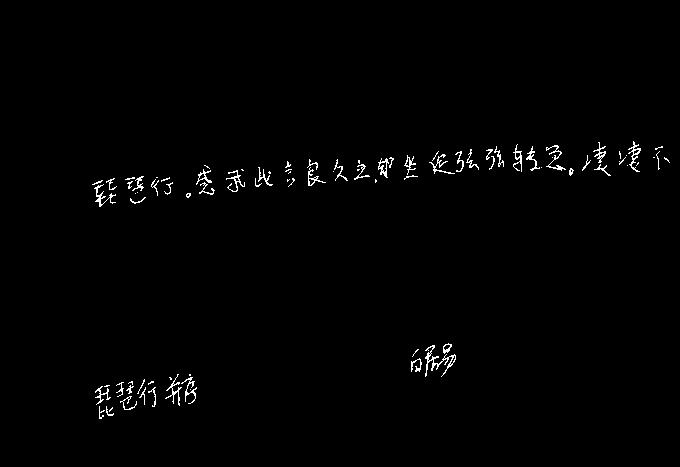 琵琶行。感我此言良久立,却坐促弦弦转急。凄凄不
白居易
琵琶行并序